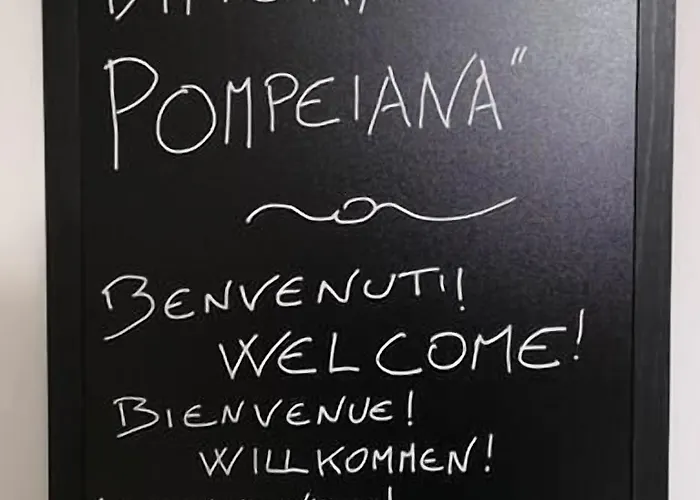 POMPEIANA"
BENVENUTI!
WELCOME!
BIENVENUE!
WILLKOMMEN!